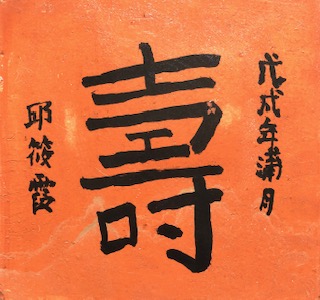 戊戌年滿月
壽
邱筱霞